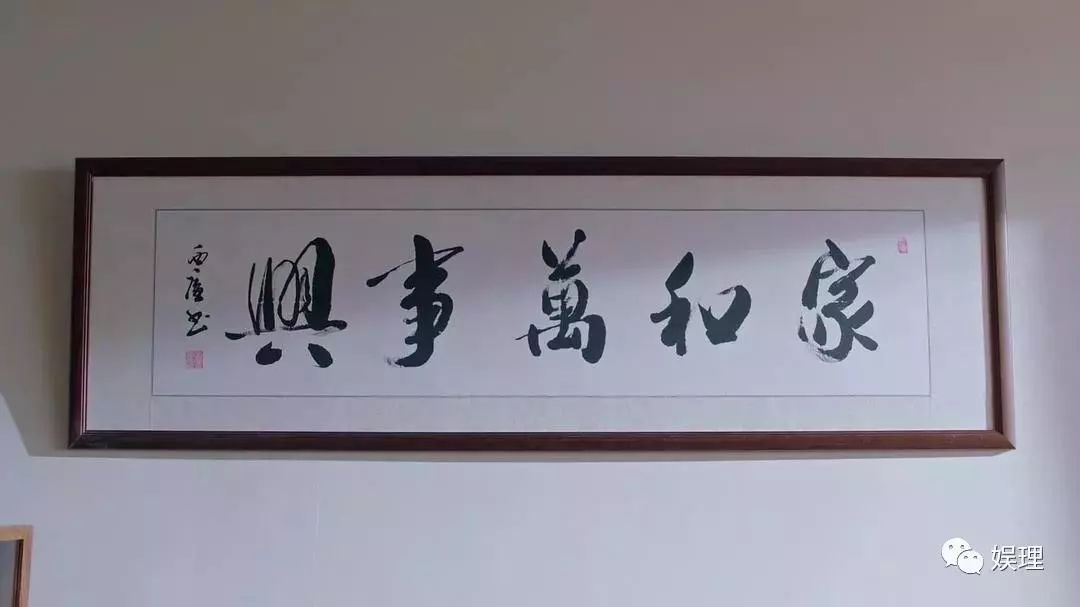 家和萬事興
娱理